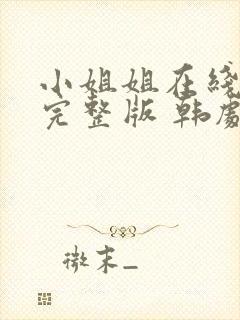 小姐姐在线
完整版 韩剧
微末_